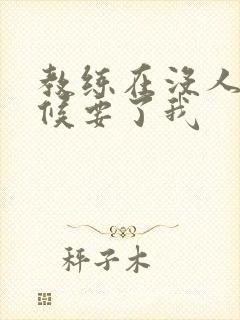 教练在没人
候要了我
秤子木